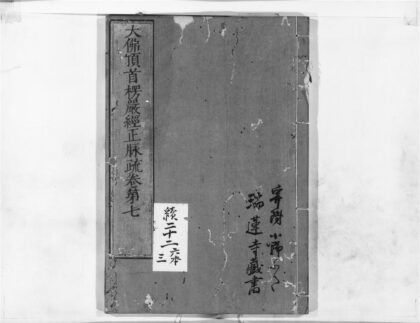 大佛頂首楞嚴經正脉疏卷第七
續二十二
六本
三
寄附
瑞蓮寺藏書